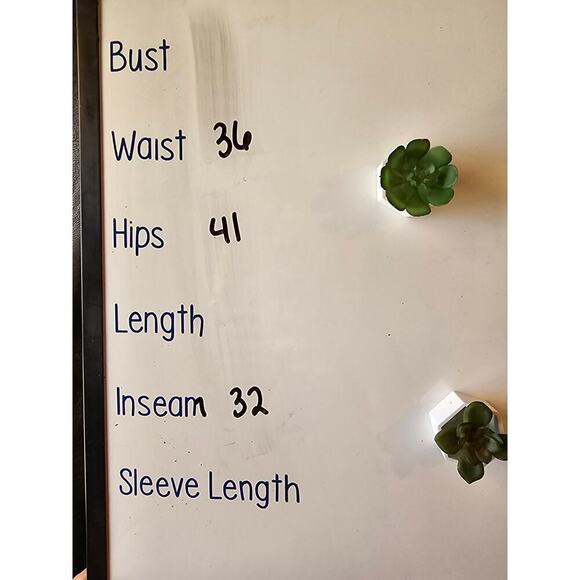 Bust
Waist 36
Hips 41
Length
Inseam 32
Sleeve Length